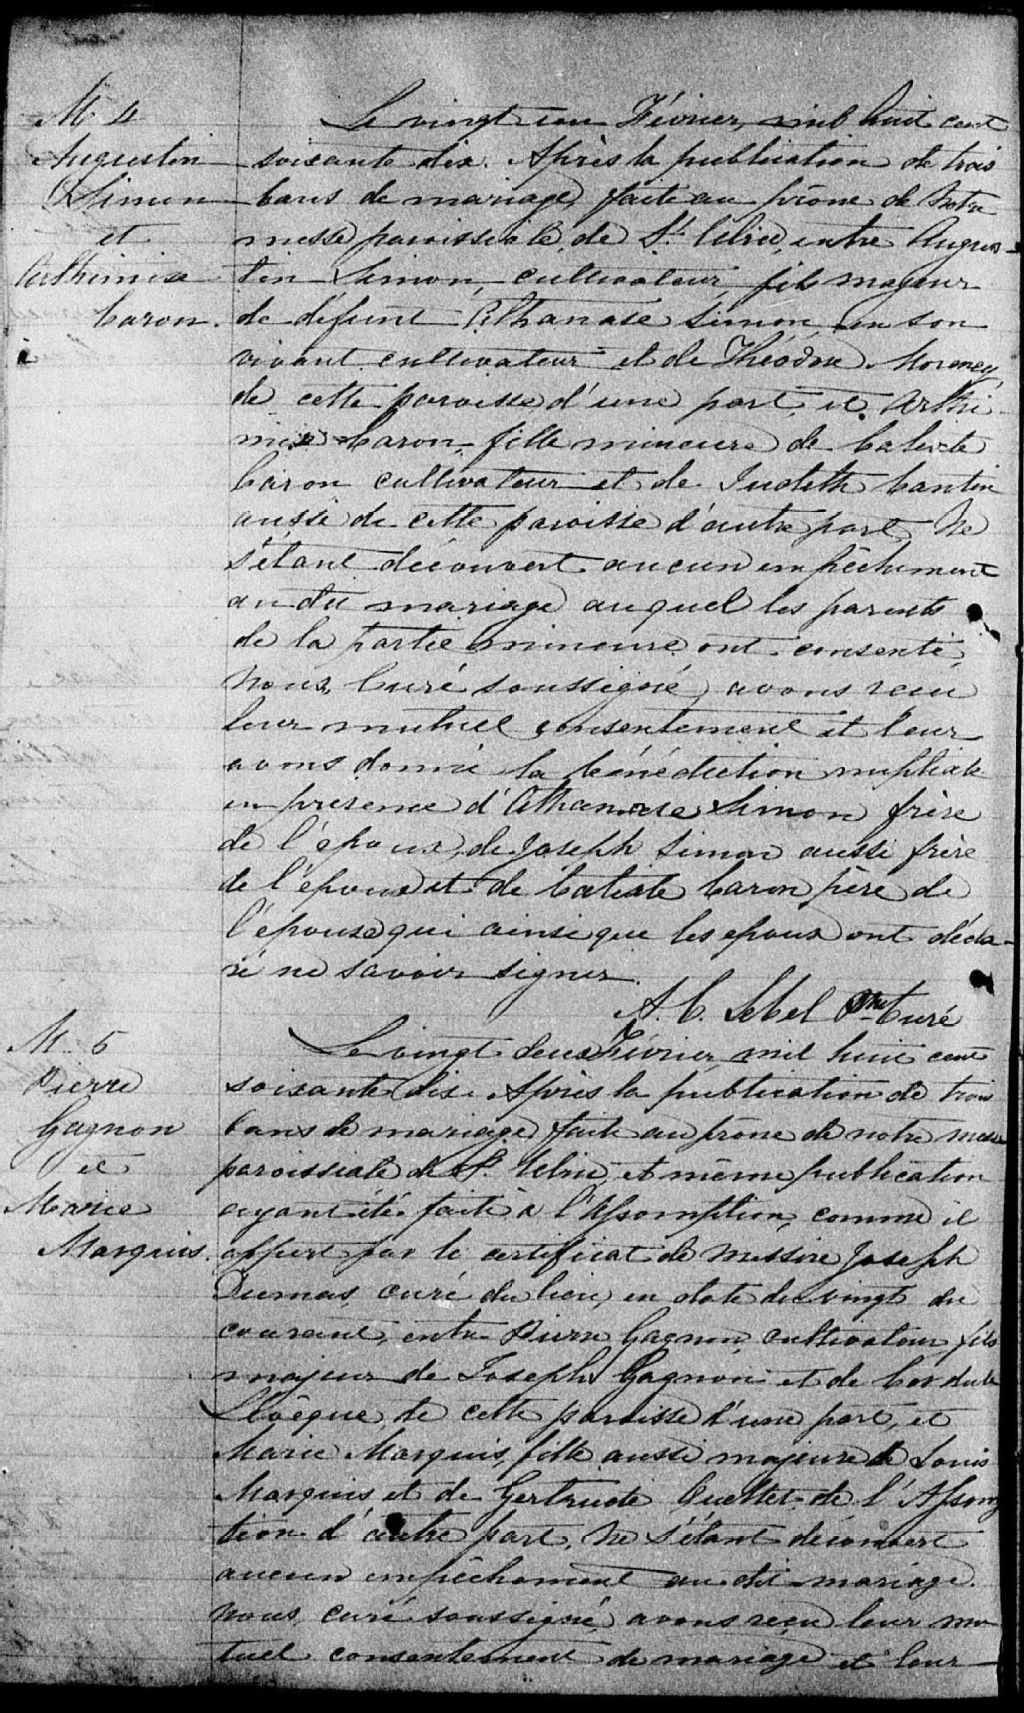 M 4
Augustin
Simon
et
Arthimise
Caron.
Le vingt un Février, mil huit cent
soixante dix. Après la publication de trois
bans de mariage faite au prône de Notre
messe paroissiale de St Ulric, entre Augus-
tin Simon, cultivateur, fils majeur
de défunt Athanase Simon, en son
vivant cultivateur et de Théodon
de cette paroisse d'une part, et Arthi-
mise Caron, fille mineure de Calixte
Caron cultivateur et de Judith Cantin
aussi de cette paroisse d'autre part, Ne
s'étant découvert aucun empêchement
au dit mariage auquel les parents
de la partie mineure ont consenti,
Nous, Curé soussigné, avons reçu
leur mutuel consentement et leur
avons donné la bénédiction nuptiale
en présence d'Athanase Simon frère
de l'époux, de Joseph Simon aussi frère
de l'époux et de Calixte Caron père de
l'épouse qui ainsi que les époux ont décla-
ré ne savoir signer.
A. C. Lebel Ptre Curé
M. 5
Pierre
Gagnon
et
Marie
Marquis.
Le vingt deux Février, mil huit cent
soixante dix. Après la publication de trois
bans de mariage faite au prône de notre messe
paroissiale de St. Ulric, et même publication
ayant été faite à l'Assomption, comme il
appert par le certificat de Messire Joseph
Dumas, curé du lieu, en date du vingt du
courant, entre Pierre Gagnon, cultivateur, fils
majeur de Joseph Gagnon et de
Lévêque, de cette paroisse d'une part, et
Marie Marquis, fille aussi majeure de Louis
Marquis et de Gertrude Ouellet de l'Assomp
tion d'autre part, Ne s'étant découvert
aucun empêchement au dit mariage.
Nous curé soussigné, avons reçu leur mu
tuel consentement de mariage et leur